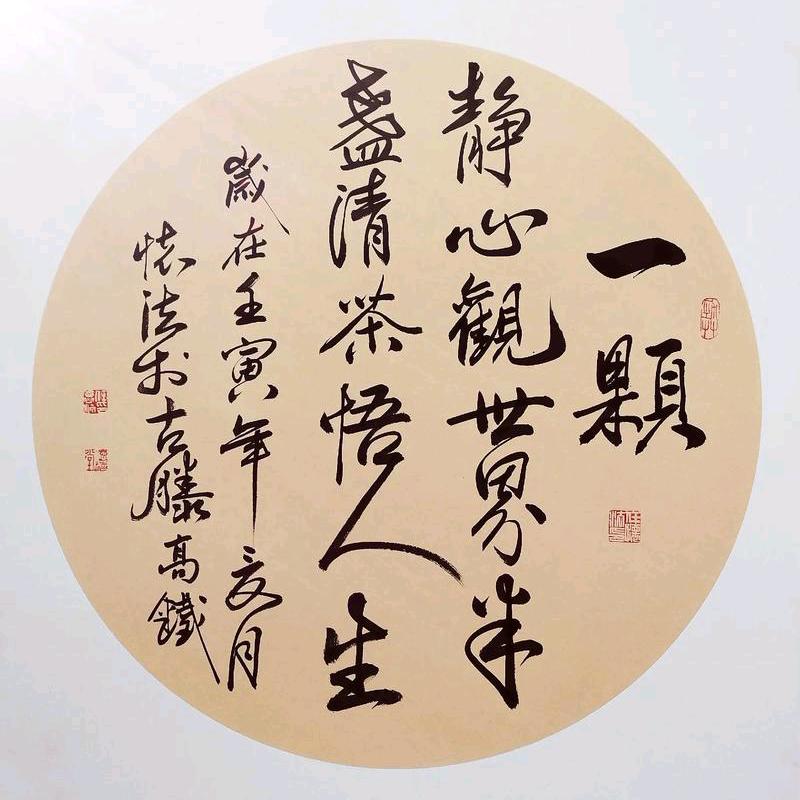 一顆
静心觀世界半
盞清茶悟人生
歲在壬寅年夏月
懷法於古滕高鐵